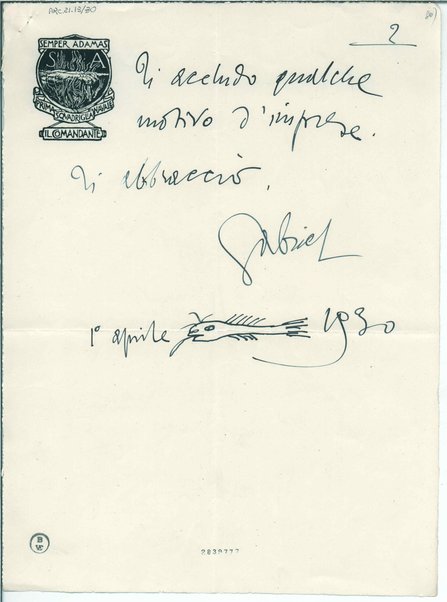 ARC.21.13/30
2
SEMPER ADAMAS
S A
PRIMA SQUADRIGLIA NAVALE
IL COMANDANTE
Ti accludo qualche
motivo d'imprese.
Ti abbraccio.
Gabriel
1° aprile 1930
B
W
2839777